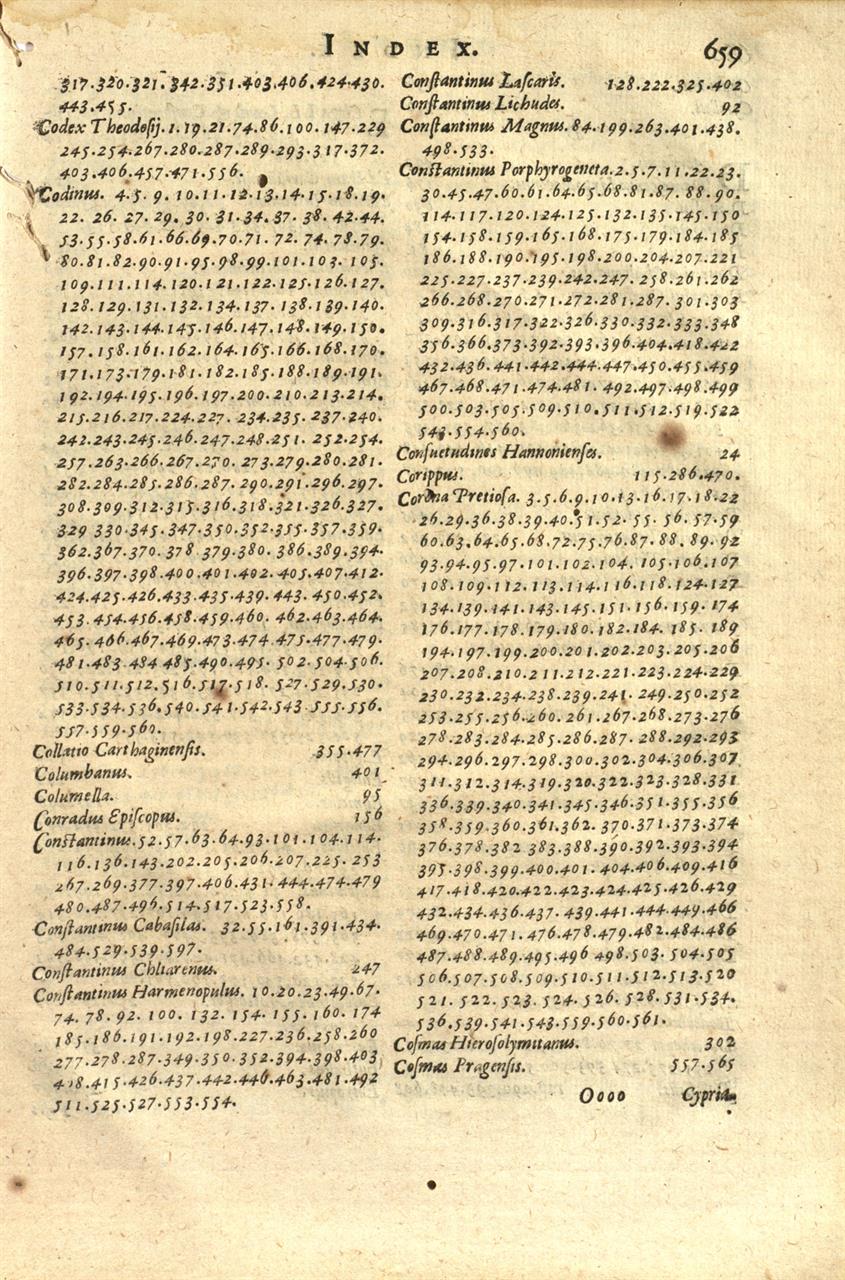 INDEX. 659
317.320.321.342.351.403.406.424.430.
443.455.
Codex Theodosij. 1.19.21.74.86.100.147.229
245.254.267.280.287.289.293.317.372.
403.406.457.471.556.
Codinus. 4.5.9.10.11.12.13.14.15.18.19.
22. 26. 27. 29. 30. 31. 34. 37. 38. 42.44.
53.55.58.61.66.69.70.71. 72. 74. 78.79.
80.81.82.90.91.95.98.99.101.103. 105.
109.111.114.120.121.122.125.126.127.
128.129.131.132.134.137.138.139.140.
142.143.144.145.146.147.148.149.150.
157.158.161.162.164.165.166.168.170.
171.173.179.181.182.185.188.189.191.
192.194.195.196.197.200.210.213.214.
215.216.217.224.227. 234.235. 237.240.
242.243.245.246.247.248.251. 252.254.
257.263.266.267.270. 273.279.280.281.
282.284.285.286.287.290.291.296.297.
308.309.312.315.316.318.321.326.327.
329 330.345.347.350.352.355.357.359.
362.367.370. 378 379.380. 386.389.394.
396.397.398.400.401.402.405.407.412.
424.425.426.433.435.439.443.450.452.
453.454.456.458.459.460. 462.463.464.
465.466.467.469.473.474.475.477.479.
481.483.484 485.490.495. 502.504.506.
510.511.512.516.517.518. 527.529.530.
533.534.536.540.541.542.543 555.556.
557.559.560.
Collatio Carthaginensis. 355.477
Columbanus. 401
Columella. 95
Conradus Episcopus. 156
Constantinus. 52.57.63.64.93.101.104.114.
116.136.143.202.205.206.207.225.253
267.269.377.397.406.431.444.474.479
480.487.496.514.517.523.558.
Constantinus Cabasilas. 32.55.161.391.434.
484.529.539.597.
Constantinus Chliarenus. 247
Constantinus Harmenopulus. 10.20.23.49.67.
74. 78. 92. 100. 132. 154. 155. 160. 174
185.186.191.192.198.227.236.258.260
277.278.287.349.350.352.394.398.403
408.415.426.437.442.446.463.481.492
511.525.527.553.554.
Constantinus Lascaris. 128.222.325.402
Constantinus Lichudes. 92
Constantinus Magnus. 84.199.263.401.438.
498.533.
Constantinus Porphyrogeneta. 2.5.7.11.22.23.
30.45.47.60.61.64.65.68.81.87. 88. 90.
114.117.120.124.125.132.135.145.150
154.158.159.165.168.175.179.184.185
186.188.190.195.198.200.204.207.221
225.227.237.239.242.247. 258.261.262
266.268.270.271.272.281.287. 301.303
309.316.317.322.326.330.332.333.348
356.366.373.392.393.396.404.418.422
432.436.441.442.444.447.450.455.459
467.468.471.474.481. 492.497.498.499
500.503.505.509.510.511.512.519.522
543.554.560.
Consuetudines Hannonienses. 24
Corippus. 115.286.470.
Corona Pretiosa. 3.5.6.9.10.13.16.17.18.22
26.29.36.38.39.40.51.52. 55. 56. 57.59
60.63.64.65.68.72.75.76.87. 88. 89.92
93.94.95.97.101.102.104. 105.106.107
108.109.112.113.114.116.118.124.127
134.139.141.143.145.151.156.159. 174
176.177.178.179.180.182.184. 185. 189
194.197.199.200.201.202.203.205.206
207.208.210.211.212.221.223.224.229
230.232.234.238.239.241. 249.250.252
253.255.256.260. 261.267.268.273.276
278.283.284.285.286.287. 288.292.293
294.296.297.298.300.302.304.306.307
311.312.314.319.320.322.323.328.331
336.339.340.341.345.346.351.355.356
358.359.360.361.362. 370.371.373.374
376.378.382 383.388.390.392.393.394
395.398.399.400.401. 404.406.409.416
417.418.420.422.423.424.425.426.429
432.434.436.437. 439.441.444.449.466
469.470.471. 476.478.479.482.484.486
487.488.489.495.496 498.503. 504.505
506.507.508.509.510.511.512.513.520
521. 522. 523. 524. 526. 528. 531.534.
536.539.541.543.559.560.561.
Cosmas Hierosolymitanus. 302
Cosmas Pragensis. 557.565
Oooo Cypria-